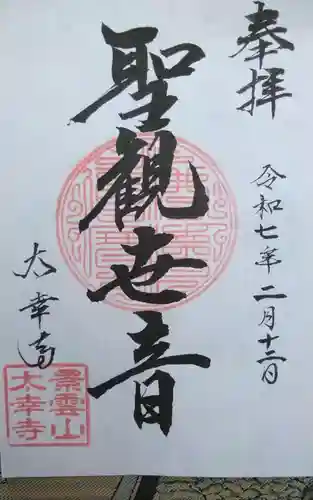 奉拝
令和七年二月十二日
聖観世音
大幸寺
景雲山
大幸寺